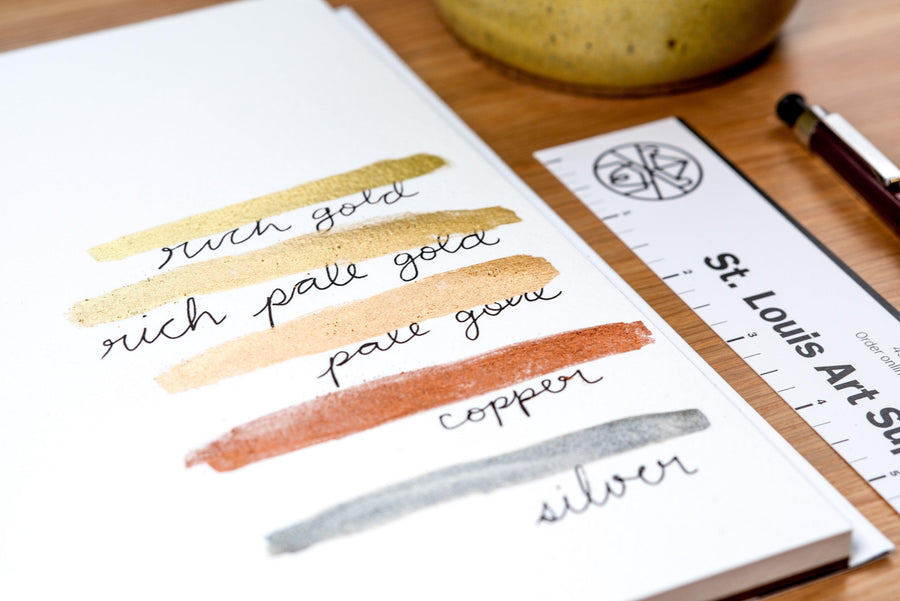 rich gold
rich pale gold
pale gold
copper
silver
1
2
3
4
5
St. Louis Art
Order